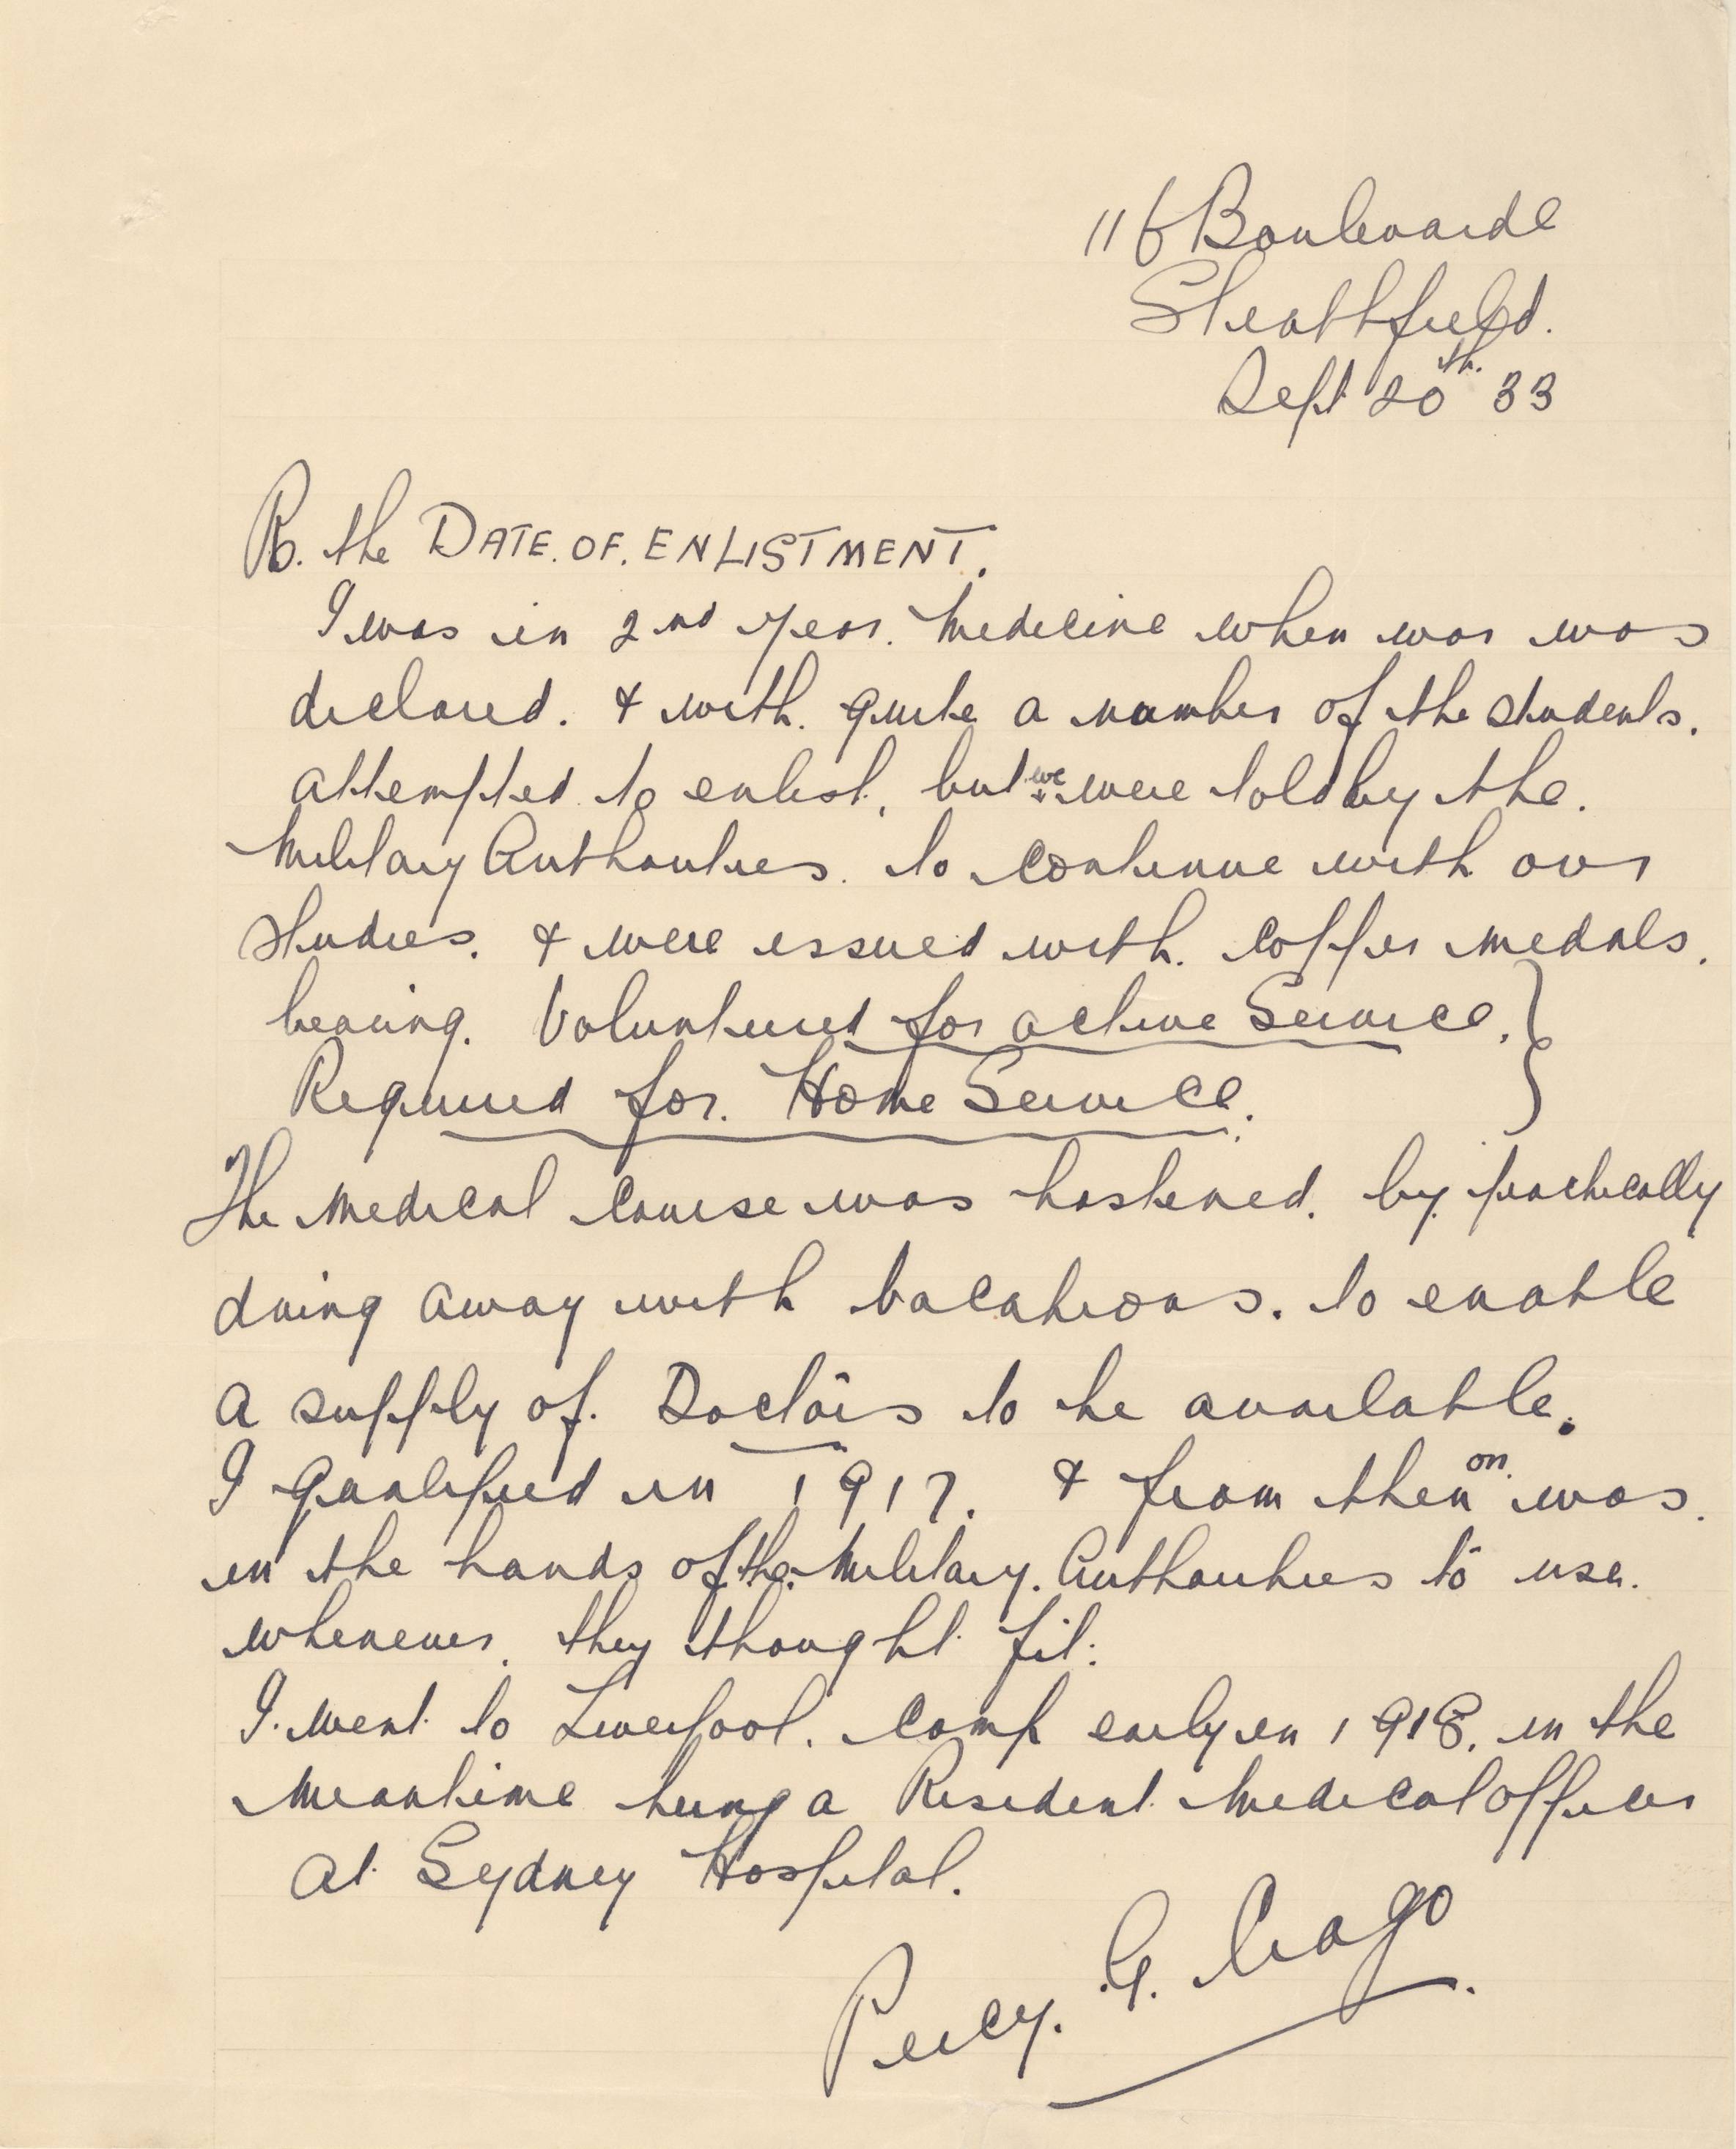 116 Boulevarde
Strathfield.
Sept 20th. 33
Re. the DATE. OF. ENLISTMENT.
I was in 2nd year. Medicine when war was
declared. & with. quite a number of the students.
attempted to enlist, but we were told by the.
Military Authorities. to continue with our
studies. & were issued with. copper medals.
bearing. Volunteered for active Service. }
Required for. Home Service.
The Medical Course was hastened. by practically
doing away with vacations. to enable
a supply of. Doctors to be available.
I qualified in 1917. & from then on. was.
in the hands of the Military. Authorities to use.
whenever. they thought fit.
I. went to Liverpool. Camp early in 1918. in the
meantime being a Resident Medical Officer
at Sydney Hospital.
Percy. G. Crago.